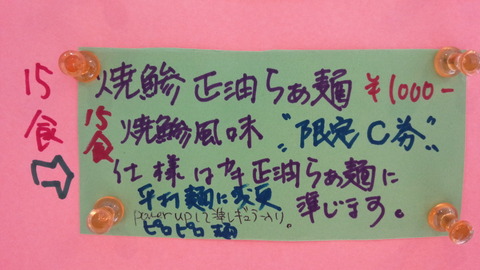 15食
焼鯵 正油らぁ麺 ¥1000-
15食
焼鯵風味 "限定C券"
仕様はカキ正油らぁ麺に
準じます。
平打麺に変更
power upして
ピロピロ麺